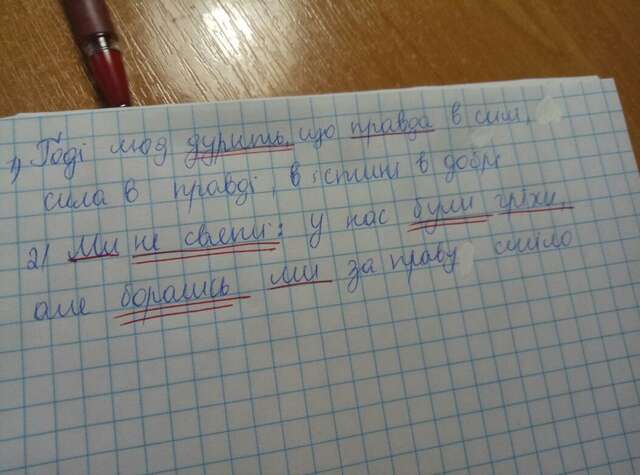 1) Годі люд дурить, що правда в силі,
сила в правді, в істині в добрі
2) Ми не святі: у нас були гріхи,
але боролись ми за праву сміло